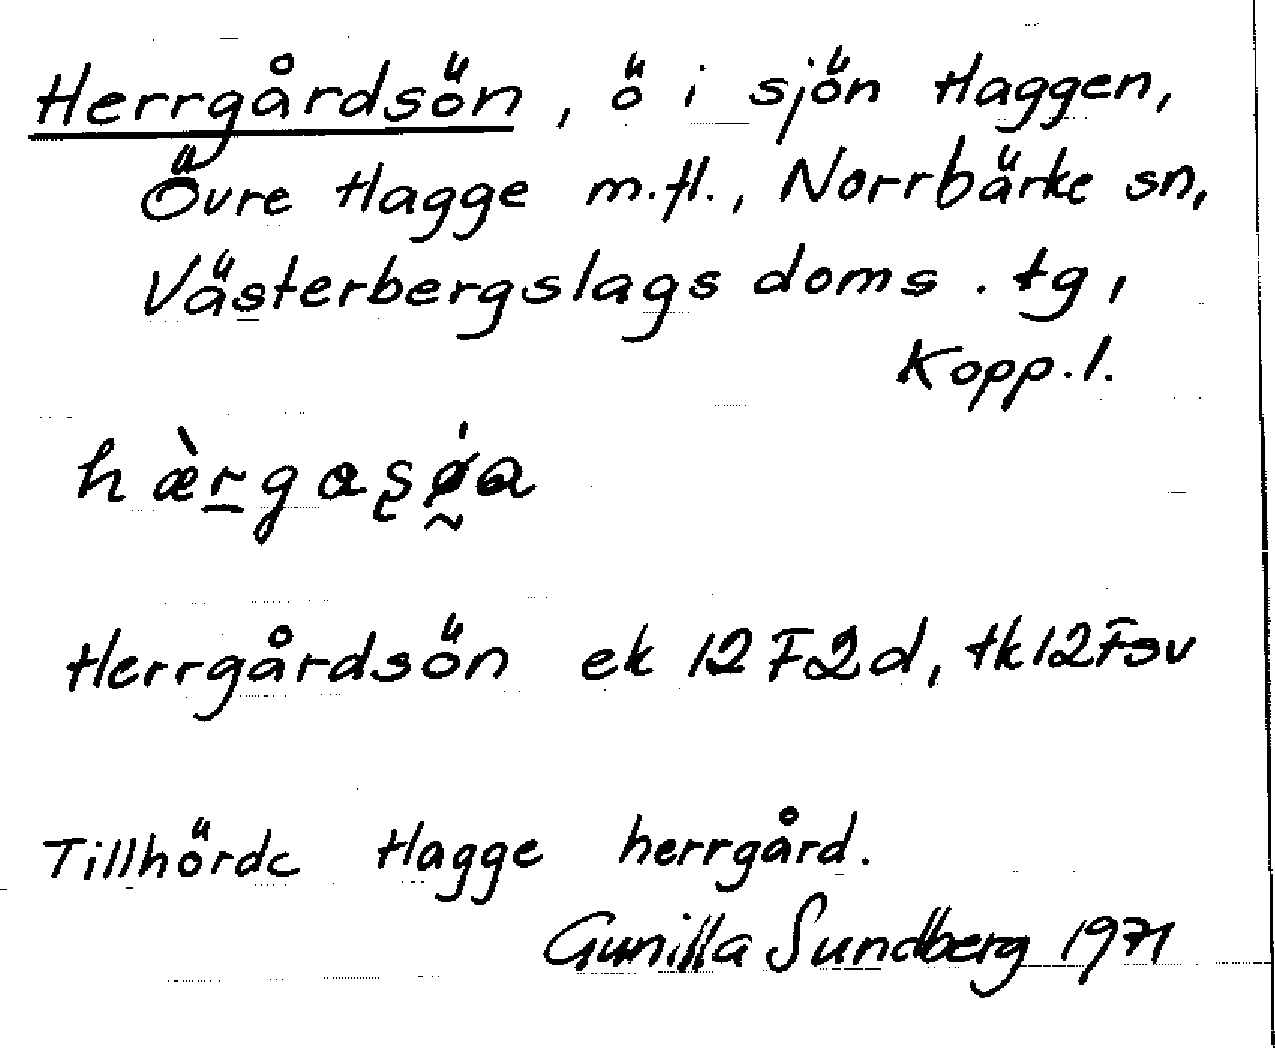 Herrgårdsön, ö i sjön Haggen,
Övre Hagge m.fl., Norrbärke sn,
Västerbergslags doms. tg,
Kopp.l.
hæ̀r̲gaʂǿ̰a
Herrgårdsön ek 12F2d, tk12Fsv
Tillhörde Hagge herrgård.
Gunilla Sundberg 1971